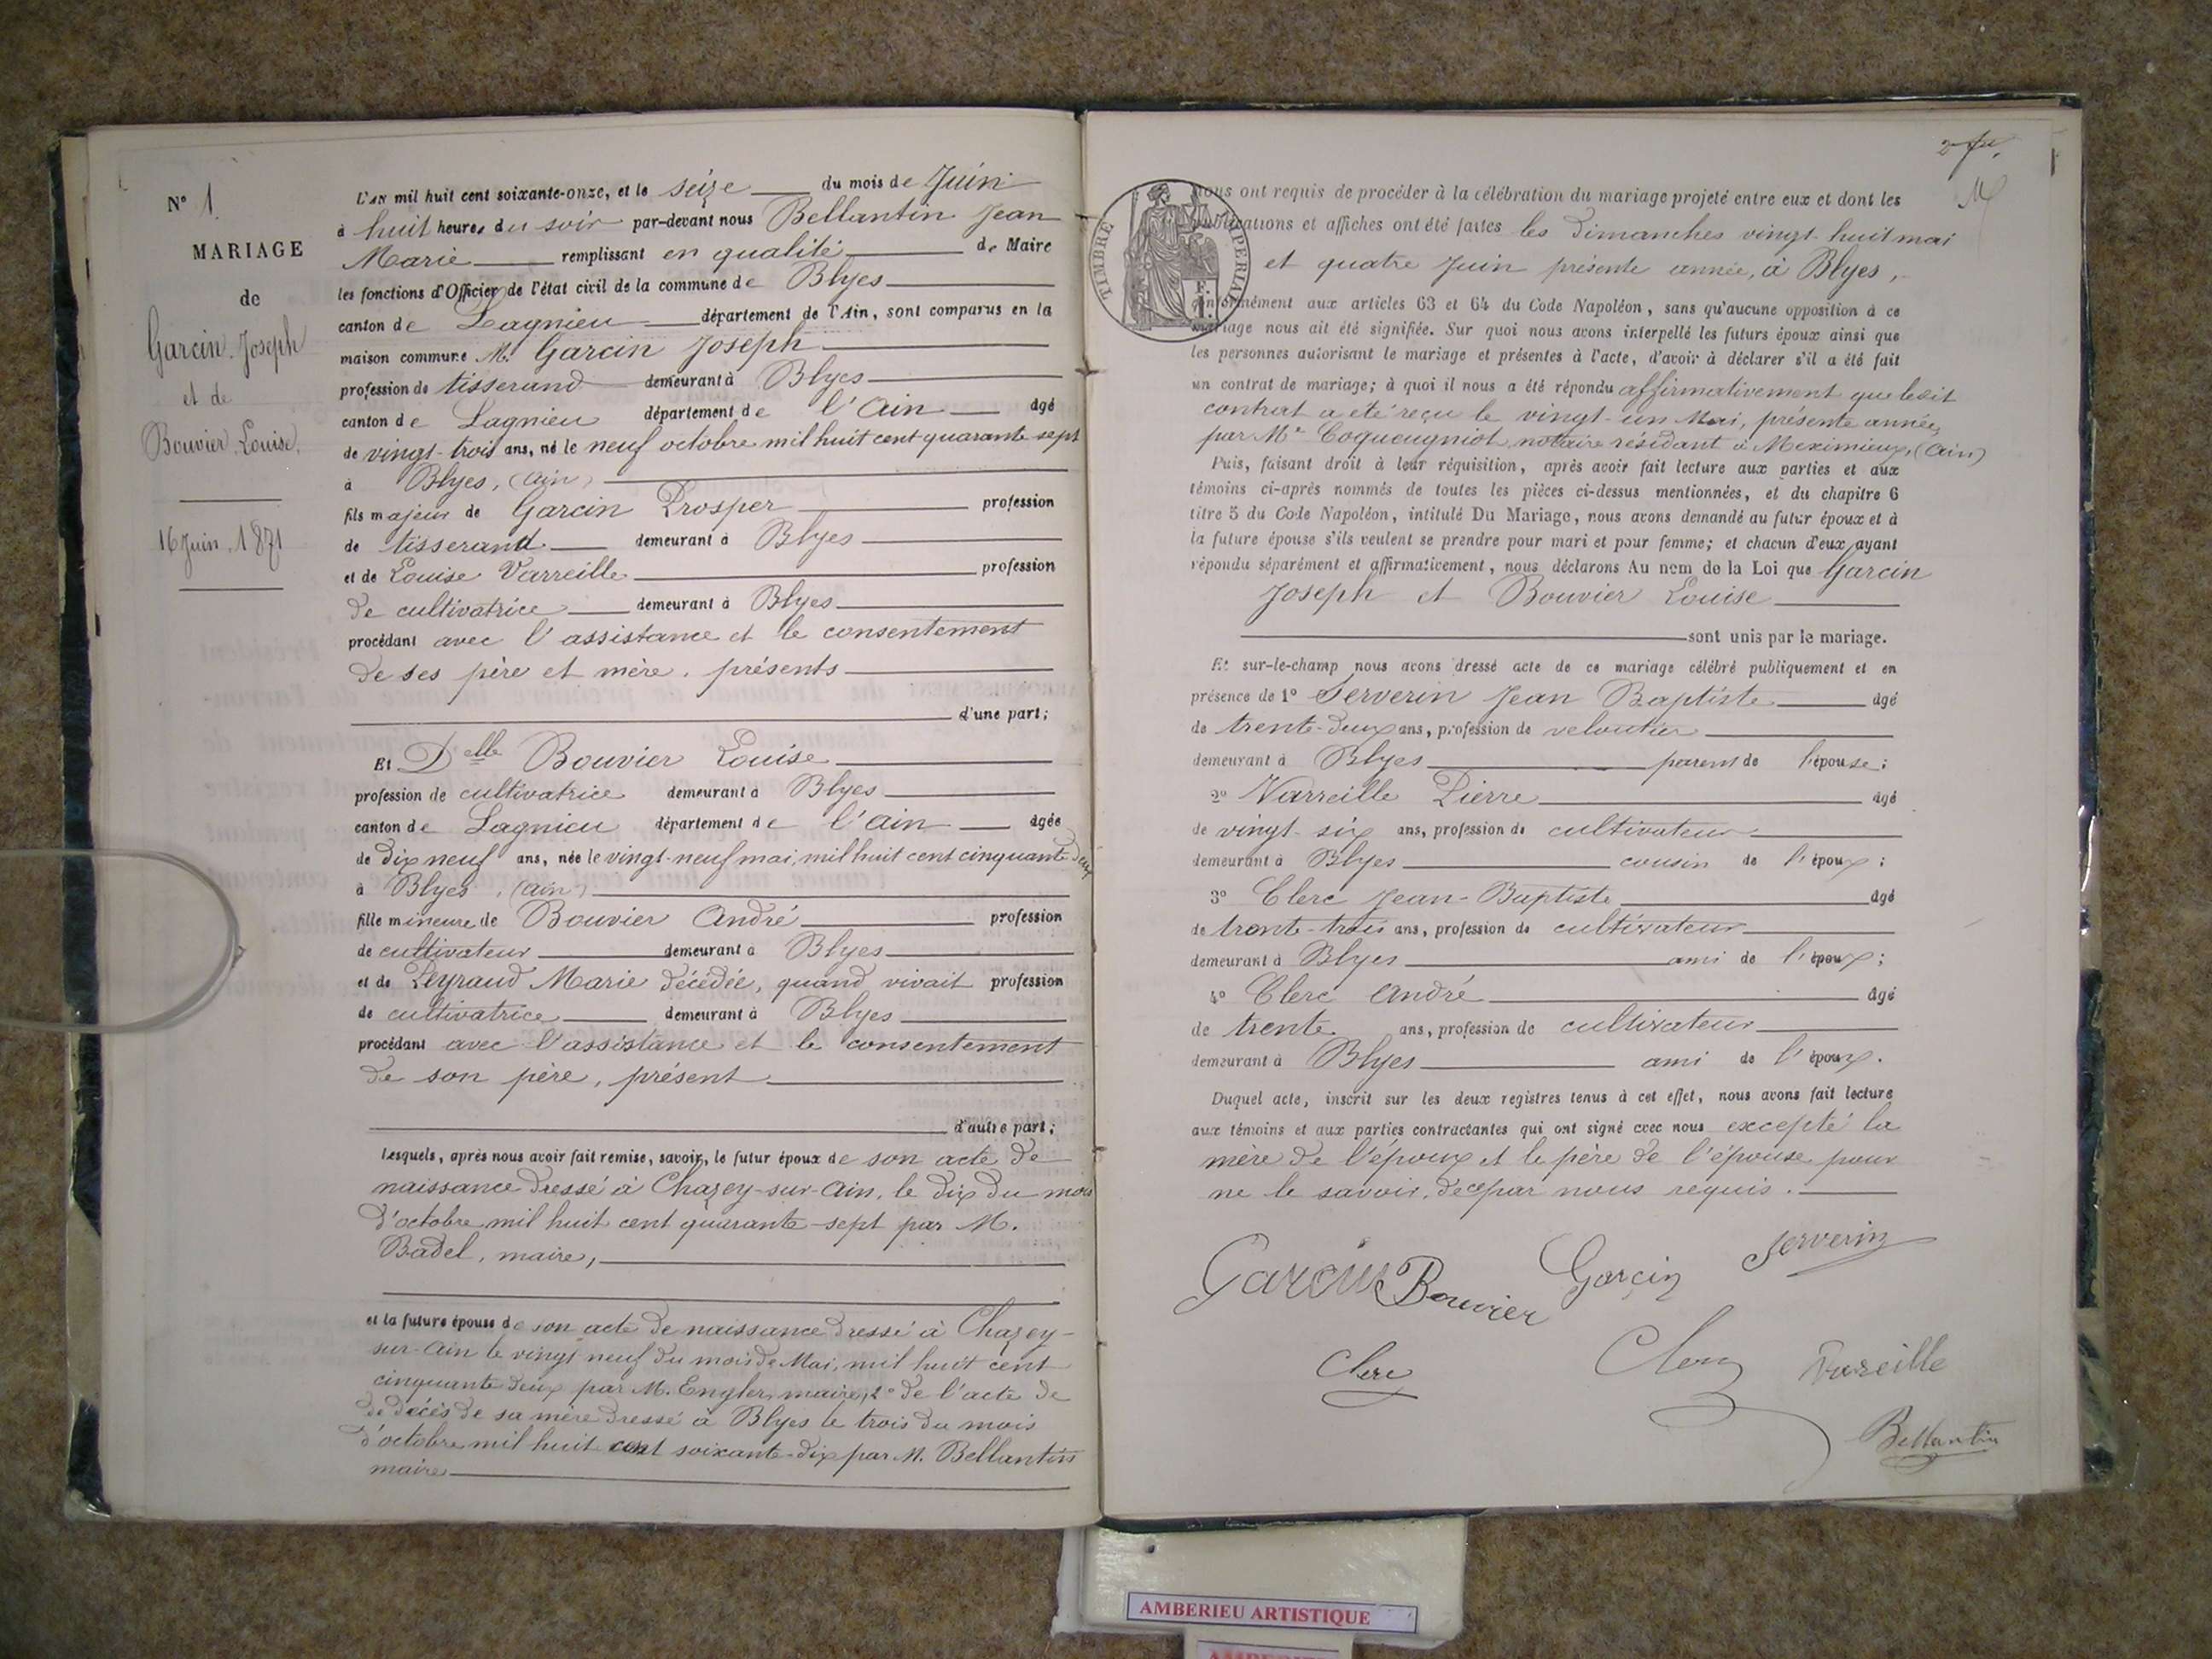 N° 1
MARIAGE
de
Garcin Joseph
et de
Bouvier Louise,
16 Juin 1871
L'AN mil huit cent soixante-onze, et le seize du mois de Juin
à huit heures du soir par-devant nous Bellantin Jean
Marie remplissant en qualité de Maire
les fonctions d'Officier de l'état civil de la commune de Blyes
canton de Lagnieu département de l'Ain, sont comparus en la
maison commune M. Garcin Joseph
profession de tisserand demeurant à Blyes
canton de Lagnieu département de l'Ain âgé
de vingt-trois ans, né le neuf octobre mil huit cent quarante sept
à Blyes, (Ain)
fils majeur de Garcin Prosper profession
de tisserand demeurant à Blyes
et de Louise Varreille profession
de cultivatrice demeurant à Blyes
procédant avec l'assistance et le consentement
de ses père et mère, présents
d'une part;
Et Delle Bouvier Louise
profession de cultivatrice demeurant à Blyes
canton de Lagnieu département de l'Ain âgée
de dix neuf ans, née le vingt-neuf mai, mil huit cent cinquante deux
à Blyes, (Ain)
fille mineure de Bouvier André profession
de cultivateur demeurant à Blyes
et de Leyraud Marie décédée, quand vivait profession
de cultivatrice demeurant à Blyes
procédant avec l'assistance et le consentement
de son père, présent
d'autre part;
Lesquels, après nous avoir fait remise, savoir, le futur époux de son acte de
naissance dressé à Chazey-sur-Ain, le dix du mois
d'octobre mil huit cent quarante-sept par M.
Badel, maire,
et la future épouse de son acte de naissance dressé à Chazey-
sur-Ain le vingt neuf du mois de Mai, mil huit cent
cinquante deux par M. Engler, maire, 2° de l'acte de
de décès de sa mère dressé à Blyes le trois du mois
d'octobre mil huit cent soixante-dix par M. Bellantin
maire
2
TIMBRE IMPERIAL
Nous ont requis de procéder à la célébration du mariage projeté entre eux et dont les
publications et affiches ont été faites les Dimanches vingt-huit mai
et quatre Juin présente année, à Blyes,
conformément aux articles 63 et 64 du Code Napoléon, sans qu'aucune opposition à ce
mariage nous ait été signifiée. Sur quoi nous avons interpellé les futurs époux ainsi que
les personnes autorisant le mariage et présentes à l'acte, d'avoir à déclarer s'il a été fait
un contrat de mariage; à quoi il nous a été répondu affirmativement que ledit
contrat a été reçu le vingt-un Mai, présente année,
par Me Coqueugniot notaire résidant à Meximieux, (Ain)
Puis, faisant droit à leur réquisition, après avoir fait lecture aux parties et aux
témoins ci-après nommés de toutes les pièces ci-dessus mentionnées, et du chapitre 6
titre 5 du Code Napoléon, intitulé Du Mariage, nous avons demandé au futur époux et à
la future épouse s'ils veulent se prendre pour mari et pour femme; et chacun d'eux ayant
répondu séparément et affirmativement, nous déclarons Au nom de la Loi que Garcin
Joseph et Bouvier Louise
sont unis par le mariage.
Et sur-le-champ nous avons dressé acte de ce mariage célébré publiquement et en
présence de 1° Serverin Jean Baptiste âgé
de trente-deux ans, profession de veloutier
demeurant à Blyes parent de l'épouse;
2° Varreille Pierre âgé
de vingt-six ans, profession de cultivateur
demeurant à Blyes cousin de l'époux;
3° Clerc Jean-Baptiste âgé
de trente-trois ans, profession de cultivateur
demeurant à Blyes ami de l'époux;
4° Clerc André âgé
de trente ans, profession de cultivateur
demeurant à Blyes ami de l'époux.
Duquel acte, inscrit sur les deux registres tenus à cet effet, nous avons fait lecture
aux témoins et aux parties contractantes qui ont signé avec nous excepté la
mère de l'époux et le père de l'épouse pour
ne le savoir, de ce par nous requis.
Garcin Bouvier Garcin Serverin
Clerc Clerc Vareille
Bellantin
AMBERIEU ARTISTIQUE